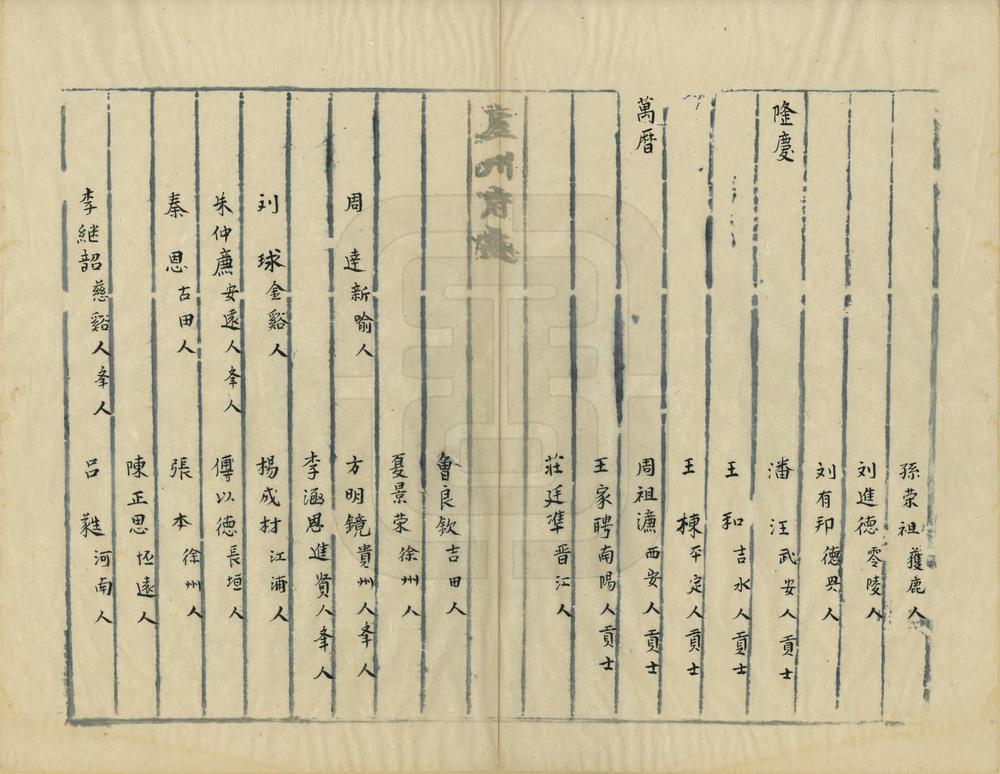 孫荣祖獲鹿人
刘進德零陵人
刘有邦德興人
隆慶 潘汪武安人貢士
王和吉水人貢士
王棟平定人貢士
萬曆 周祖濂西安人貢士
王家聘南陽人貢士
莊廷準晋江人
廬州府志
魯良欽吉田人
夏景荣徐州人
周達新喻人 方明鏡貴州人夆人
李涵恩進賢人夆人
刘球金谿人 楊成材江浦人
朱仲廉安遠人夆人 傅以德長垣人
秦恩古田人 張本徐州人
陳正思怀遠人
李継韶慈谿人夆人 吕 河南人